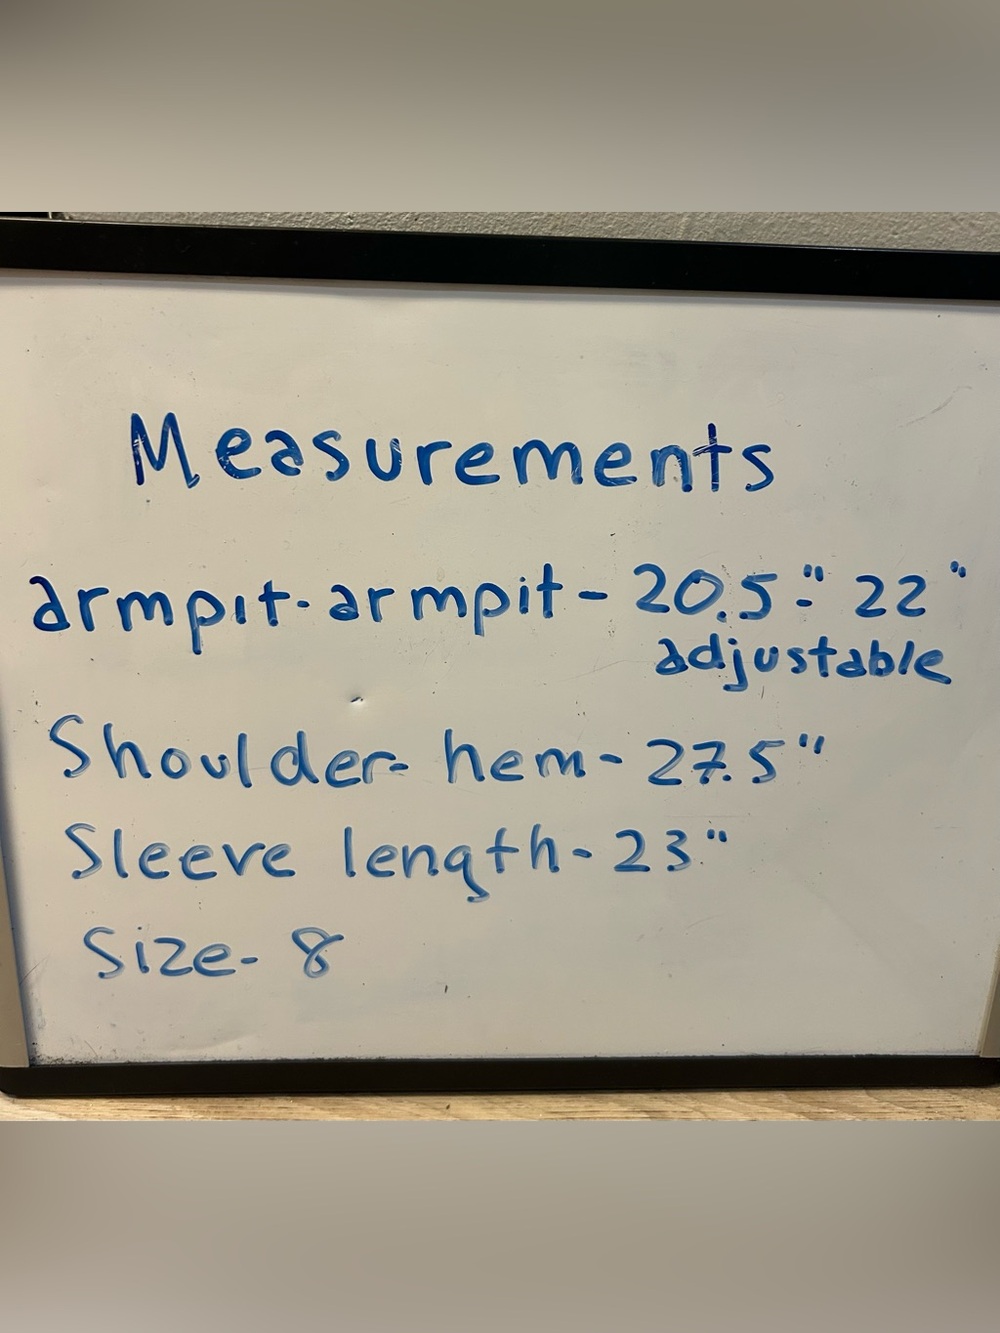 Measurements
armpit-armpit- 20.5"- 22"
adjustable
Shoulder- hem- 27.5"
Sleeve length- 23"
Size- 8